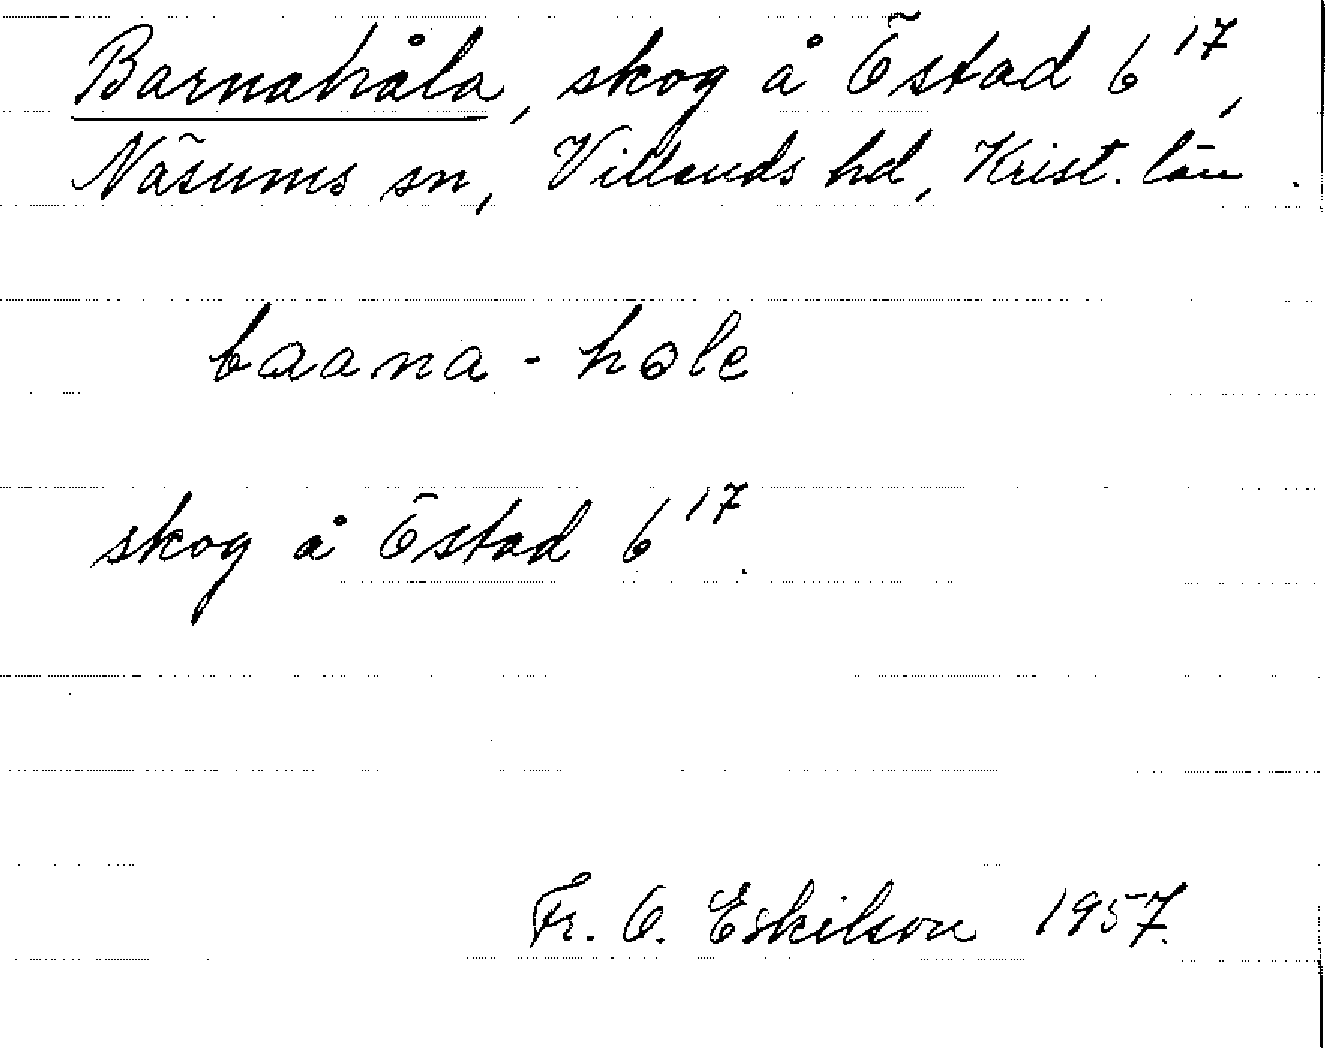 Barnahåla, skog å Östad 6¹⁷,
Näsums sn, Villands hd, Krist. län.
baana - hole
skog å Östad 6¹⁷.
Fr. O. Eskilson 1957.